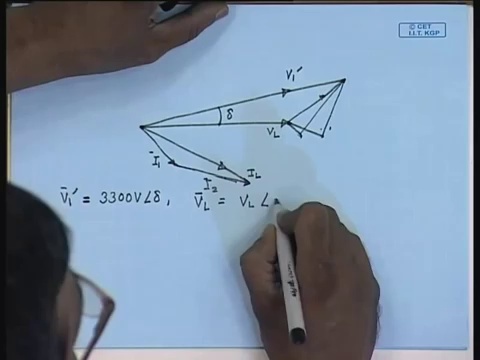 © CET
I.I.T. KGP
V₁′
δ
V_L
Ī₁
I_L
Ī₂
V̄₁′ = 3300V∠δ, V̄_L = V_L ∠